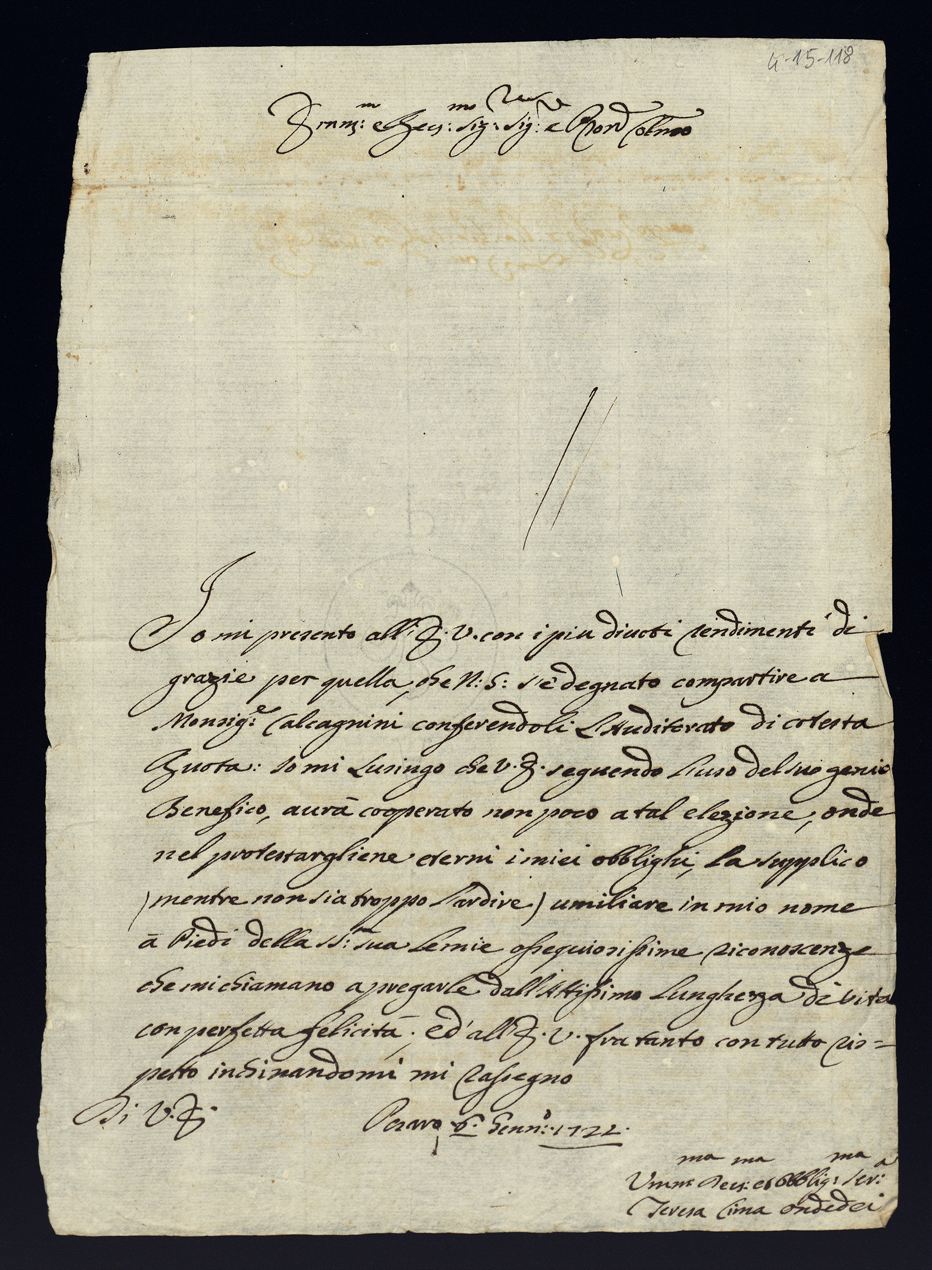 4-15-118
Emin: e Rev: Sig: Sig: e Pron Colmo
Io mi presento all' E. V. con i più divoti rendimenti di
grazie per quella, che N: S: s'è degnato compartire a
Monsig:e Calcagnini conferendoli L'Auditorato di cotesta
Ruota: Io mi Lusingo che V. E. seguendo L'uso del suo genio
Benefico, aurà cooperato non poco a tal elezione, onde
nel protestargliene eterni i miei obblighi, La supplico
(mentre non sia troppo L'ardire) umiliare in mio nome
à Piedi della SS: sua Le mie ossequiosissime riconoscenze
che mi chiamano a pregarle dall'Altissimo Lunghezza di vita
con perfetta felicità; ed' all' E. V. fra tanto con tutto ris=
petto inchinandomi mi rassegno
Di V. E.
Pesaro 6: Genn:o 1722.
Umma Devma: et Obbligma: Ser:a
Teresa Cima Ondedei